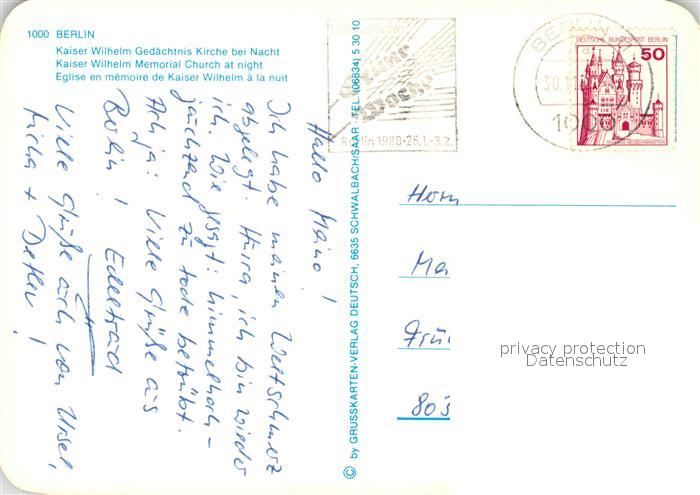 1000 BERLIN
Kaiser Wilhelm Gedächtnis Kirche bei Nacht
Kaiser Wilhelm Memorial Church at night
Eglise en mémoire de Kaiser Wilhelm à la nuit
Hallo Heino!
Ich habe meinen Weltschmerz
abgelegt. Hurra, ich bin wieder
ich. Wie gesagt: himmelhoch-
jauchzend zu Tode betrübt.
Ach ja! Viele Grüße aus
Berlin! Edeltraud
Viele Grüße auch von Ursel,
Micha + Detlev!
© by GRUSSKARTEN-VERLAG DEUTSCH, 6635 SCHWALBACH/SAAR · TEL. (06834) 5 30 10
Grüne
Woche
Berlin 1980·25.1.-3.2.
BERLIN
30.1
1000
DEUTSCHE BUNDESPOST BERLIN
50
Herrn
Ma
Frü
803
privacy protection
Datenschutz